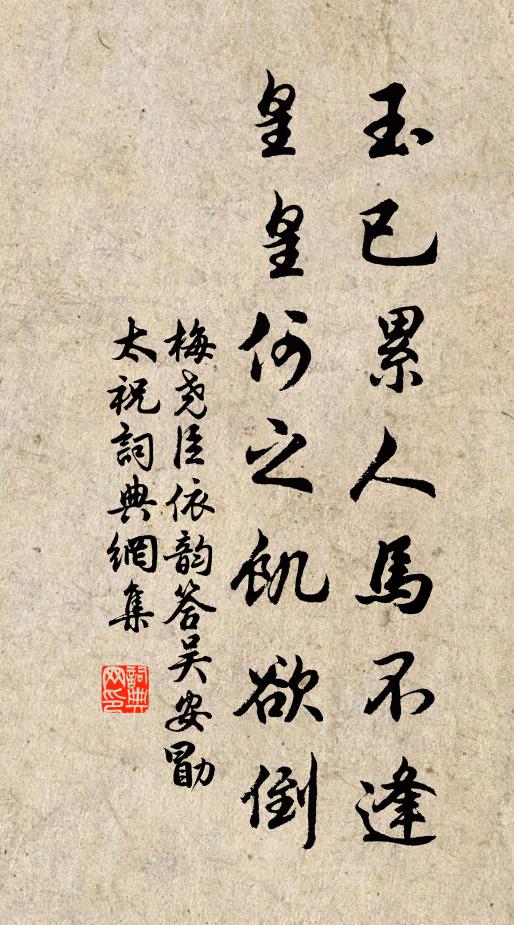 玉已累人馬不逢
皇皇何之飢欲倒
梅尧臣依韵答吴安勖
太祝詞典網集
詞典
网印